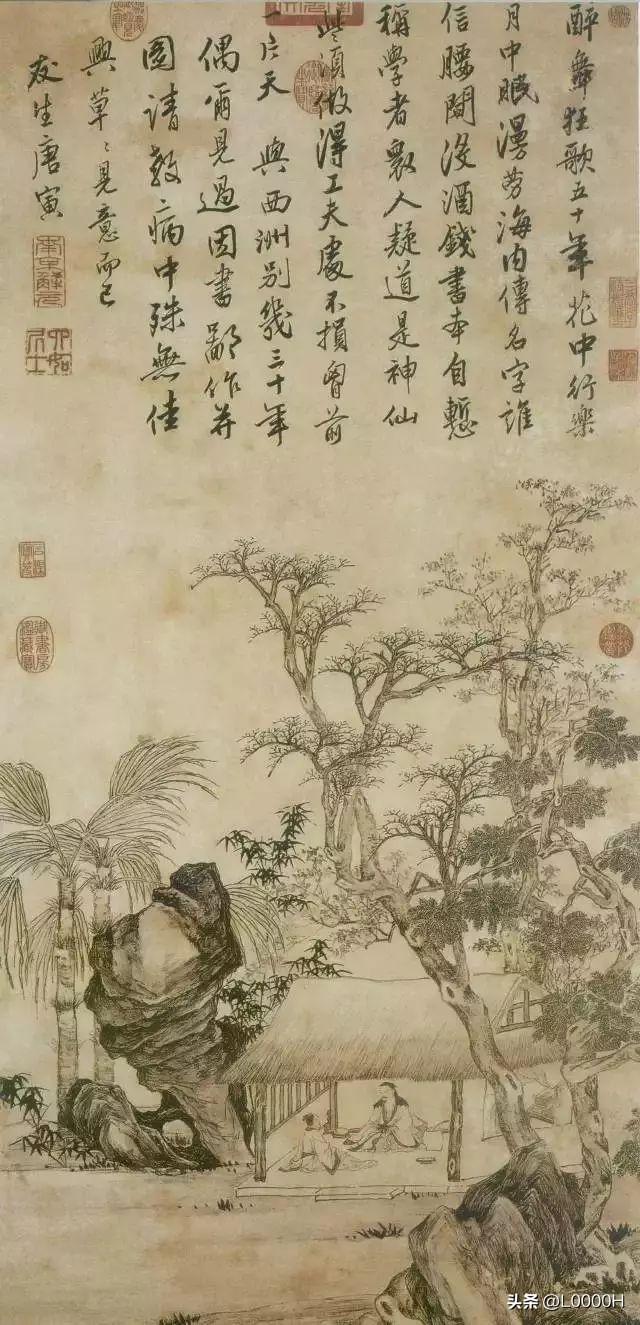 醉舞狂歌五十年花中行樂
月中眠漫勞海內傳名字誰
信腰間沒酒錢書本自慙
稱學者衆人疑道是神仙
些須做得工夫處不損胷前
一片天 與西洲別幾三十年
偶爾見過因書鄙作并
圖請教〻病中殊無佳
興草〻見意而已
友生唐寅
南京解元
六如居士
头条 @L0000H